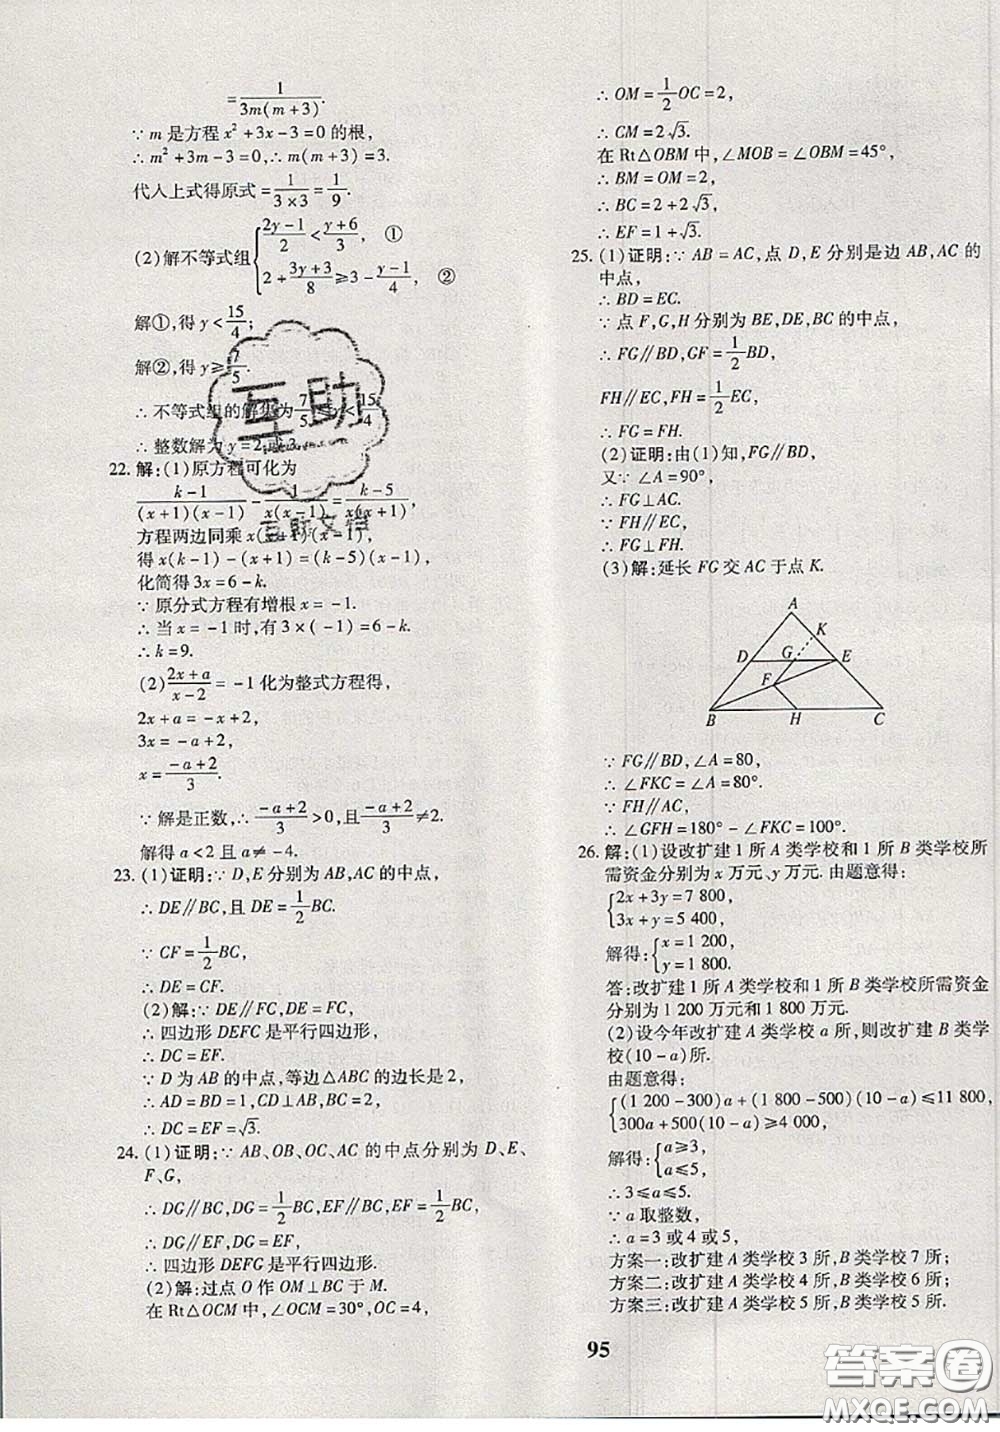 =1/(3m(m+3)).
∵m是方程x²+3x-3=0的根,
∴m²+3m-3=0,∴m(m+3)=3.
代入上式得原式=1/(3×3)=1/9.
(2)解不等式组{(2y-1)/2<(y+6)/3, ①
2+(3y+3)/8≥3-(y-1)/4, ②
解①,得y<15/4;
解②,得y≥7/5.
∴不等式组的解集为7/5≤y<15/4
∴整数解为y=2或3.
22.解:(1)原方程可化为
(k-1)/((x+1)(x-1))-1/(x(x-1))=(k-5)/(x(x+1)),
方程两边同乘x(x+1)(x-1),
得x(k-1)-(x+1)=(k-5)(x-1),
化简得3x=6-k.
∵原分式方程有增根x=-1.
∴当x=-1时,有3×(-1)=6-k.
∴k=9.
(2)(2x+a)/(x-2)=-1化为整式方程得,
2x+a=-x+2,
3x=-a+2,
x=(-a+2)/3.
∵解是正数,∴(-a+2)/3>0,且(-a+2)/3≠2.
解得a<2且a≠-4.
23.(1)证明:∵D,E分别为AB,AC的中点,
∴DE∥BC,且DE=1/2BC.
∵CF=1/2BC,
∴DE=CF.
(2)解:∵DE∥FC,DE=FC,
∴四边形DEFC是平行四边形,
∴DC=EF.
∵D为AB的中点,等边△ABC的边长是2,
∴AD=BD=1,CD⊥AB,
∴DC=EF=√3.
24.(1)证明:∵AB、OB、OC、AC的中点分别为D、E、
F、G,
∴DG∥BC,DG=1/2BC,EF∥BC,EF=1/2BC,
∴DG∥EF,DG=EF.
∴四边形DEFG是平行四边形.
(2)解:过点O作OM⊥BC于M.
在Rt△OCM中,∠OCM=30°,OC=4,
∴OM=1/2OC=2,
∴CM=2√3.
在Rt△OBM中,∠MOB=∠OBM=45°,
∴BM=OM=2,
∴BC=2+2√3,
∴EF=1+√3.
25.(1)证明:∵AB=AC,点D,E分别是边AB,AC的
中点,
∴BD=EC.
∵点F,G,H分别为BE,DE,BC的中点,
∴FG∥BD,GF=1/2BD,
FH∥EC,FH=1/2EC,
∴FG=FH.
(2)证明:由(1)知,FG∥BD,
又∵∠A=90°,
∴FG⊥AC.
∵FH∥EC,
∴FG⊥FH.
(3)解:延长FG交AC于点K.
A
K
D G E
F
B H C
∵FG∥BD,∠A=80,
∴∠FKC=∠A=80°.
∵FH∥AC,
∴∠GFH=180°-∠FKC=100°.
26.解:(1)设改扩建1所A类学校和1所B类学校所
需资金分别为x万元、y万元.由题意得:
{2x+3y=7 800,
3x+y=5 400,
解得:{x=1 200,
y=1 800.
答:改扩建1所A类学校和1所B类学校所需资金
分别为1 200万元和1 800万元.
(2)设今年改扩建A类学校a所,则改扩建B类学
校(10-a)所.
由题意得:
{(1 200-300)a+(1 800-500)(10-a)≤11 800,
300a+500(10-a)≥4 000,
解得:{a≥3,
a≤5,
∴3≤a≤5.
∵a取整数,
∴a=3或4或5,
方案一:改扩建A类学校3所,B类学校7所;
方案二:改扩建A类学校4所,B类学校6所;
方案三:改扩建A类学校5所,B类学校5所.
95
互助
答案卷
MXQE.COM